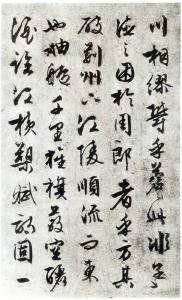 川相繆鬱乎蒼〻此非孟
德之困於周郎者乎方其
破荊州下江陵順流而東
也舳艫千里旌旗蔽空釃
酒臨江橫槊賦詩固一